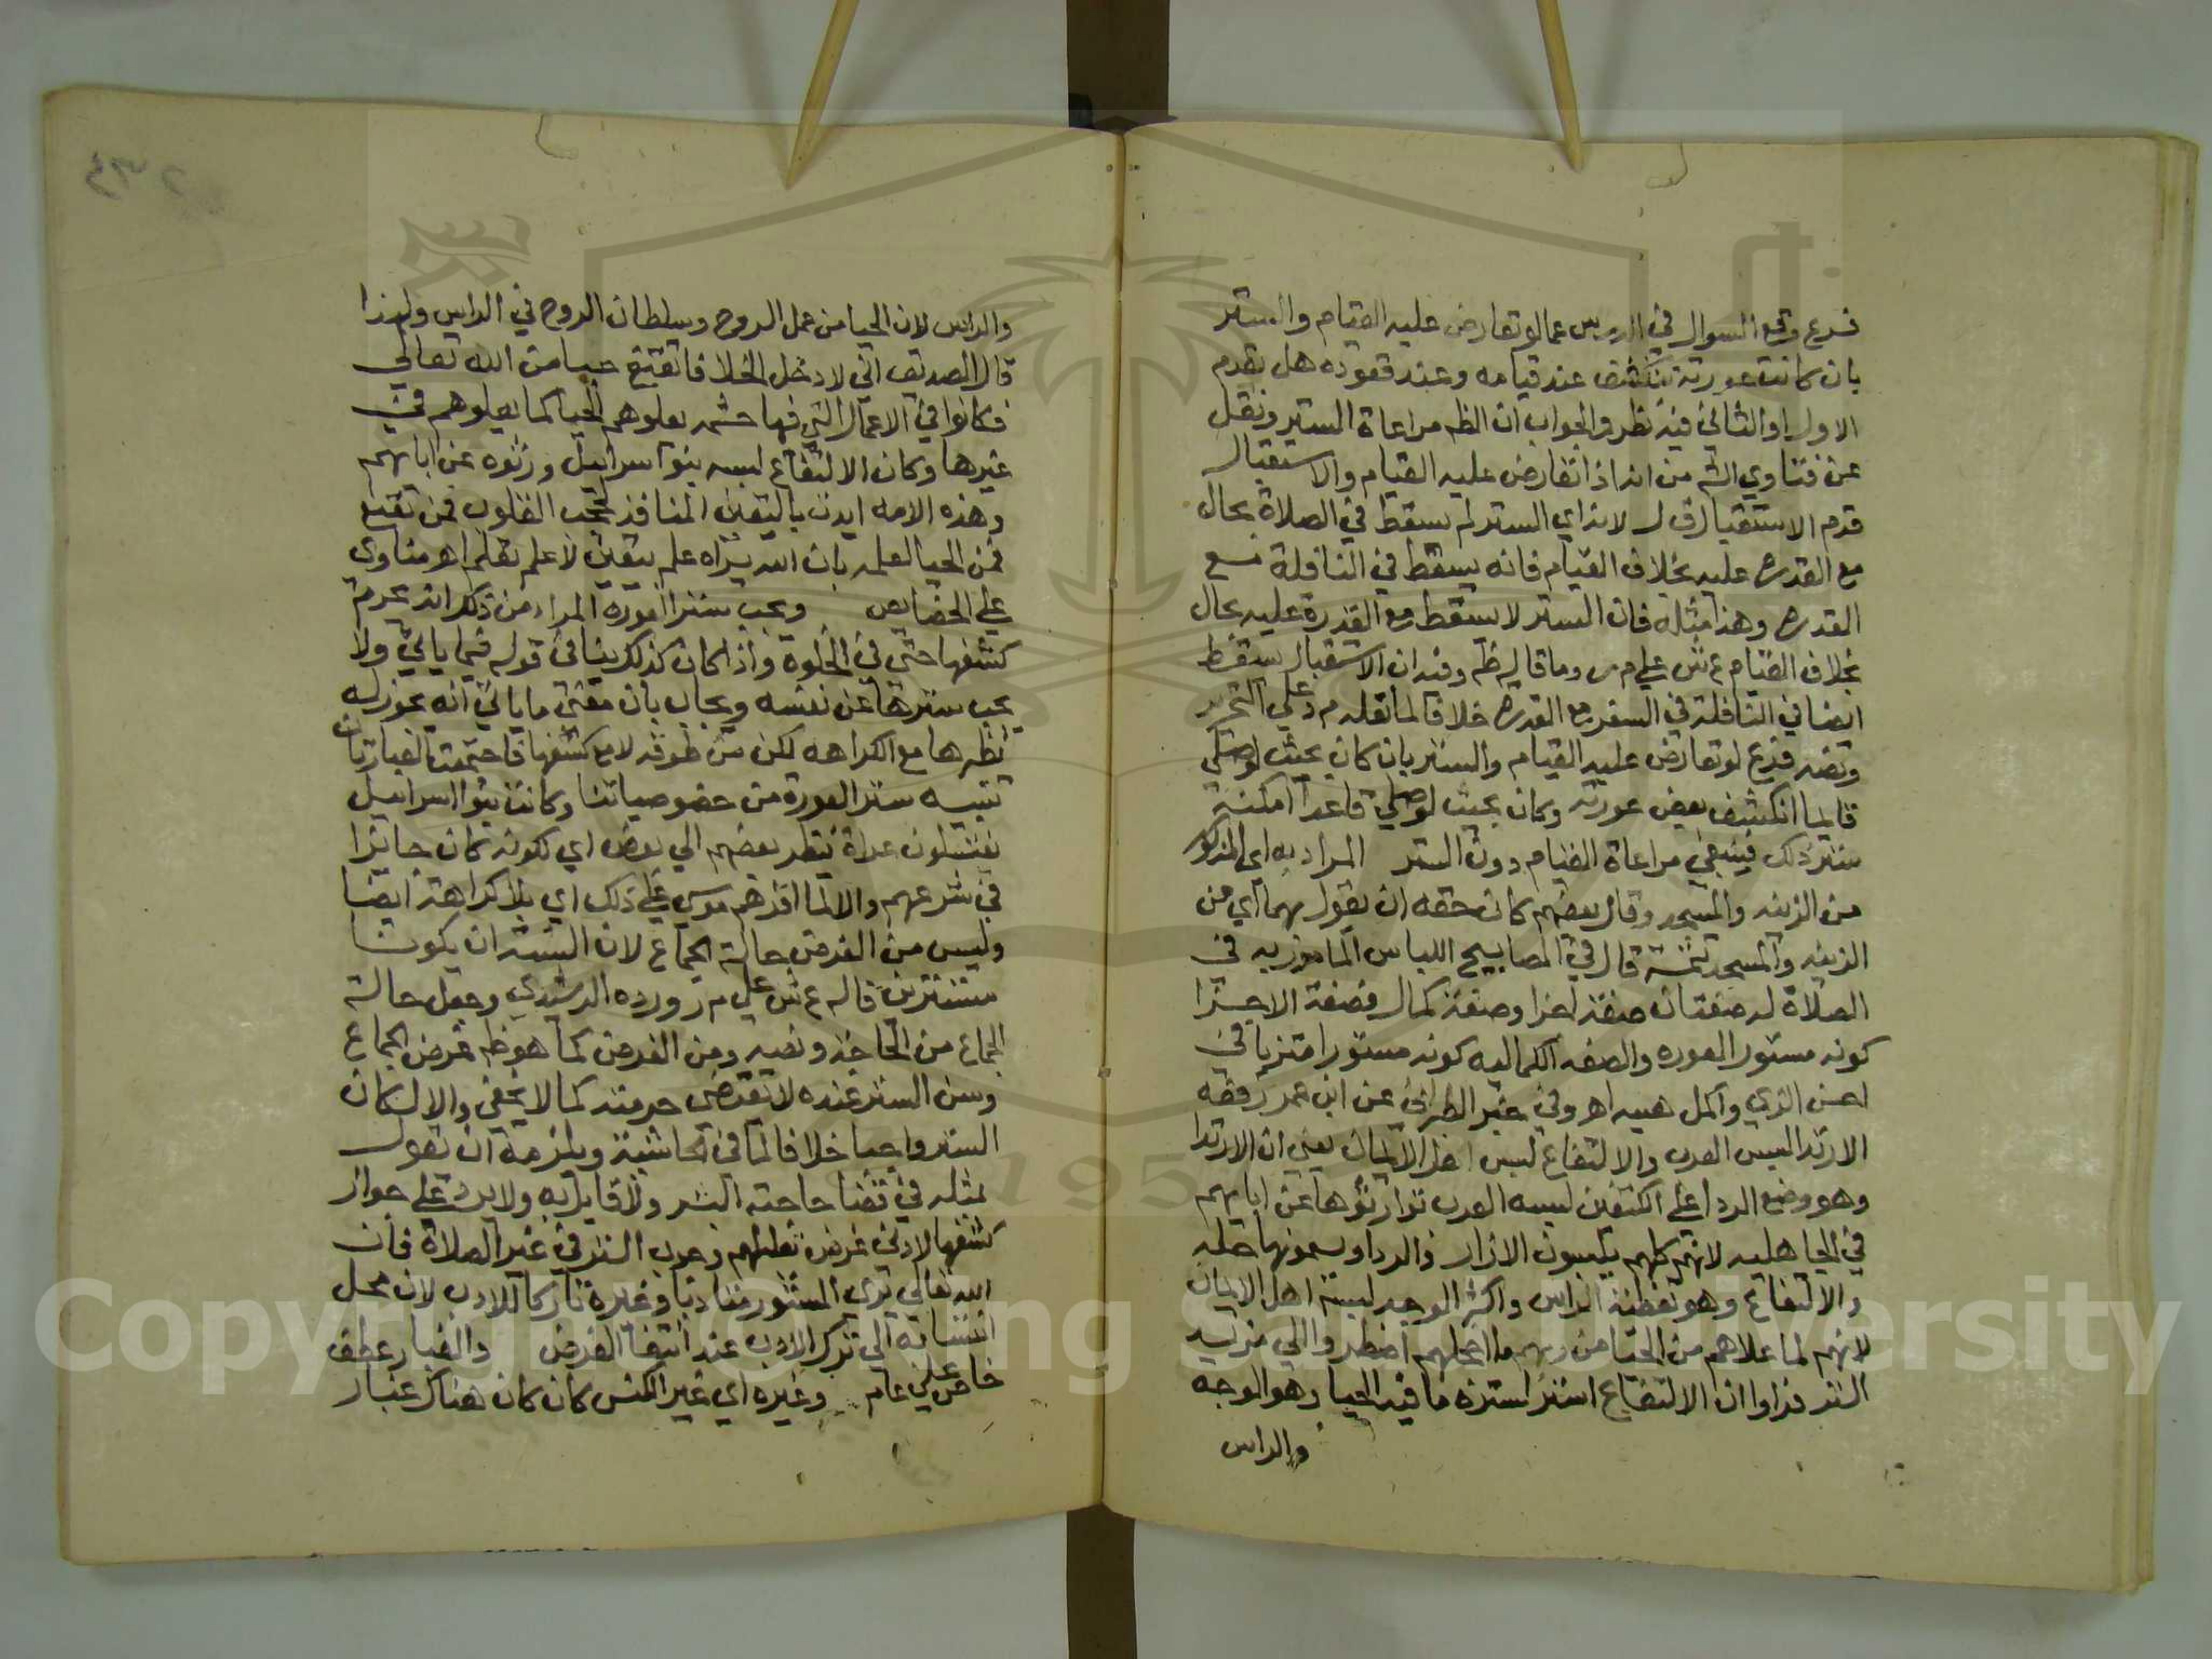 فرع وقع السوال في الدرس عما لو تعارض عليه القيام والستر
بان كانت عورته تنكشف عند قيامه وعند قعوده هل يقدم
الاول او الثاني فيه نظر والجواب ان الظم مراعاة الستر ونقل
عن فتاوي الشم من انه اذا تعارض عليه القيام والاستقبال
قدم الاستقبال قال لانه اي الستر لم يسقط في الصلاة بحال
مع القدره عليه بخلاف القيام فانه يسقط في النافلة مع
القدره وهذا مثله فان الستر لا يسقط مع القدرة عليه بحال
بخلاف القيام ع ش علي م ر وما قاله ظم وفيه ان الاستقبال يسقط
ايضا في النافلة في السفر مع القدره خلافا لما نقله م د علي التحرير
ونصه فرع لو تعارض عليه القيام والستر بان كان بحيث لو صلي
قايما انكشف بعض عورته وكان بحيث لو صلي قاعدا امكنه
ستر ذلك فينبغي مراعاة القيام دون الستر المراد به اي المذكور
من الزينه والمسجد وقال بعضهم كان حقه ان يقول بهما اي من
الزينه والمسجد تتمة قال في المصابيح اللباس المامور به في
الصلاة له صفتان صفة اجزا وصفة كمال فصفة الاجزا
كونه مستور العوره والصفه الكماليه كونه مستورا متزيا في
احسن الزي واكمل هييه اهـ وفي خبر الطبراني عن ابن عمر رفعه
الارتدا لبس العرب والالتفاع لبس اهل الايمان يعني ان الارتدا
وهو وضع الردا علي الكتفين لبسه العرب توارثوها عن ابايهم
في الجاهليه لانهم كلهم يلبسون الازار والردا ويسمونها حله
والالتفاع وهو تغطية الراس واكثر الوجه لبسة اهل الايمان
لانهم لما علاهم من الحيا من ربهم ما اخجلهم اضطروا الي مزيد
الستر فراوا ان الالتفاع استر لستره ما فيه الحيا وهو الوجه
والراس
والراس لان الحيا من عمل الروح وسلطان الروح في الراس ولهذا
قال الصديق اني لادخل الخلا فاتقنع حيا من الله تعالي
فكانوا في الاعمال التي فيها حشمه يعلوهم الحيا كما يعلوهم في
غيرها وكان الالتفاع لبسه بنو اسراييل ورثوه عن ابايهم
وهذه الامه ايدت باليقين المنافذ لحجب القلوب فمن تقنع
فمن الحيا لعلمه بان الله يراه علم يتقين لا علم تعلم اهـ مناوي
علي الخصايص ويجب ستر العوره المراد من ذلك انه يحرم
كشفها حتي في الخلوة واذا كان كذلك ينافي قوله فيما ياتي ولا
يجب سترها عن نفسه ويجاب بان معني ما ياتي انه يجوز له
نظرها مع الكراهه لكن من طوقه لا مع كشفها فاجتمعت العبارتان
تنبيه ستر العورة من خصوصياتنا وكانت بنوا اسراييل
يغتسلون عراة ينظر بعضهم الي بعض اي لكونه كان جايزا
في شرعهم والا لما اقرهم موسي علي ذلك اي بلا كراهة ايضا
وليس من الغرض حالة الجماع لان السنة ان يكونا
مستترين قاله ع ش علي م ر ورده الرشيدي وجعل حالة
الجماع من الحاجة ونصه ومن الغرض كما هو ظم غرض الجماع
وسن الستر عنده لا يقتضي حرمته كما لا يخفي والا لكان
الستر واجبا خلافا لما في الحاشية ويلزمه ان يقول
بمثله في قضا حاجته البشر ولا قايل به ولا يرد علي جواز
كشفها لادني غرض تعليلهم وجوب الستر في غير الصلاة فان
الله تعالي يري المستور متادبا وغيره تاركا للادب لان محل
انتسابه الي ترك الادب عند انتفا الغرض والغبار عطف
خاص علي عام وغيره اي غير الكنس كان كان هناك غبار